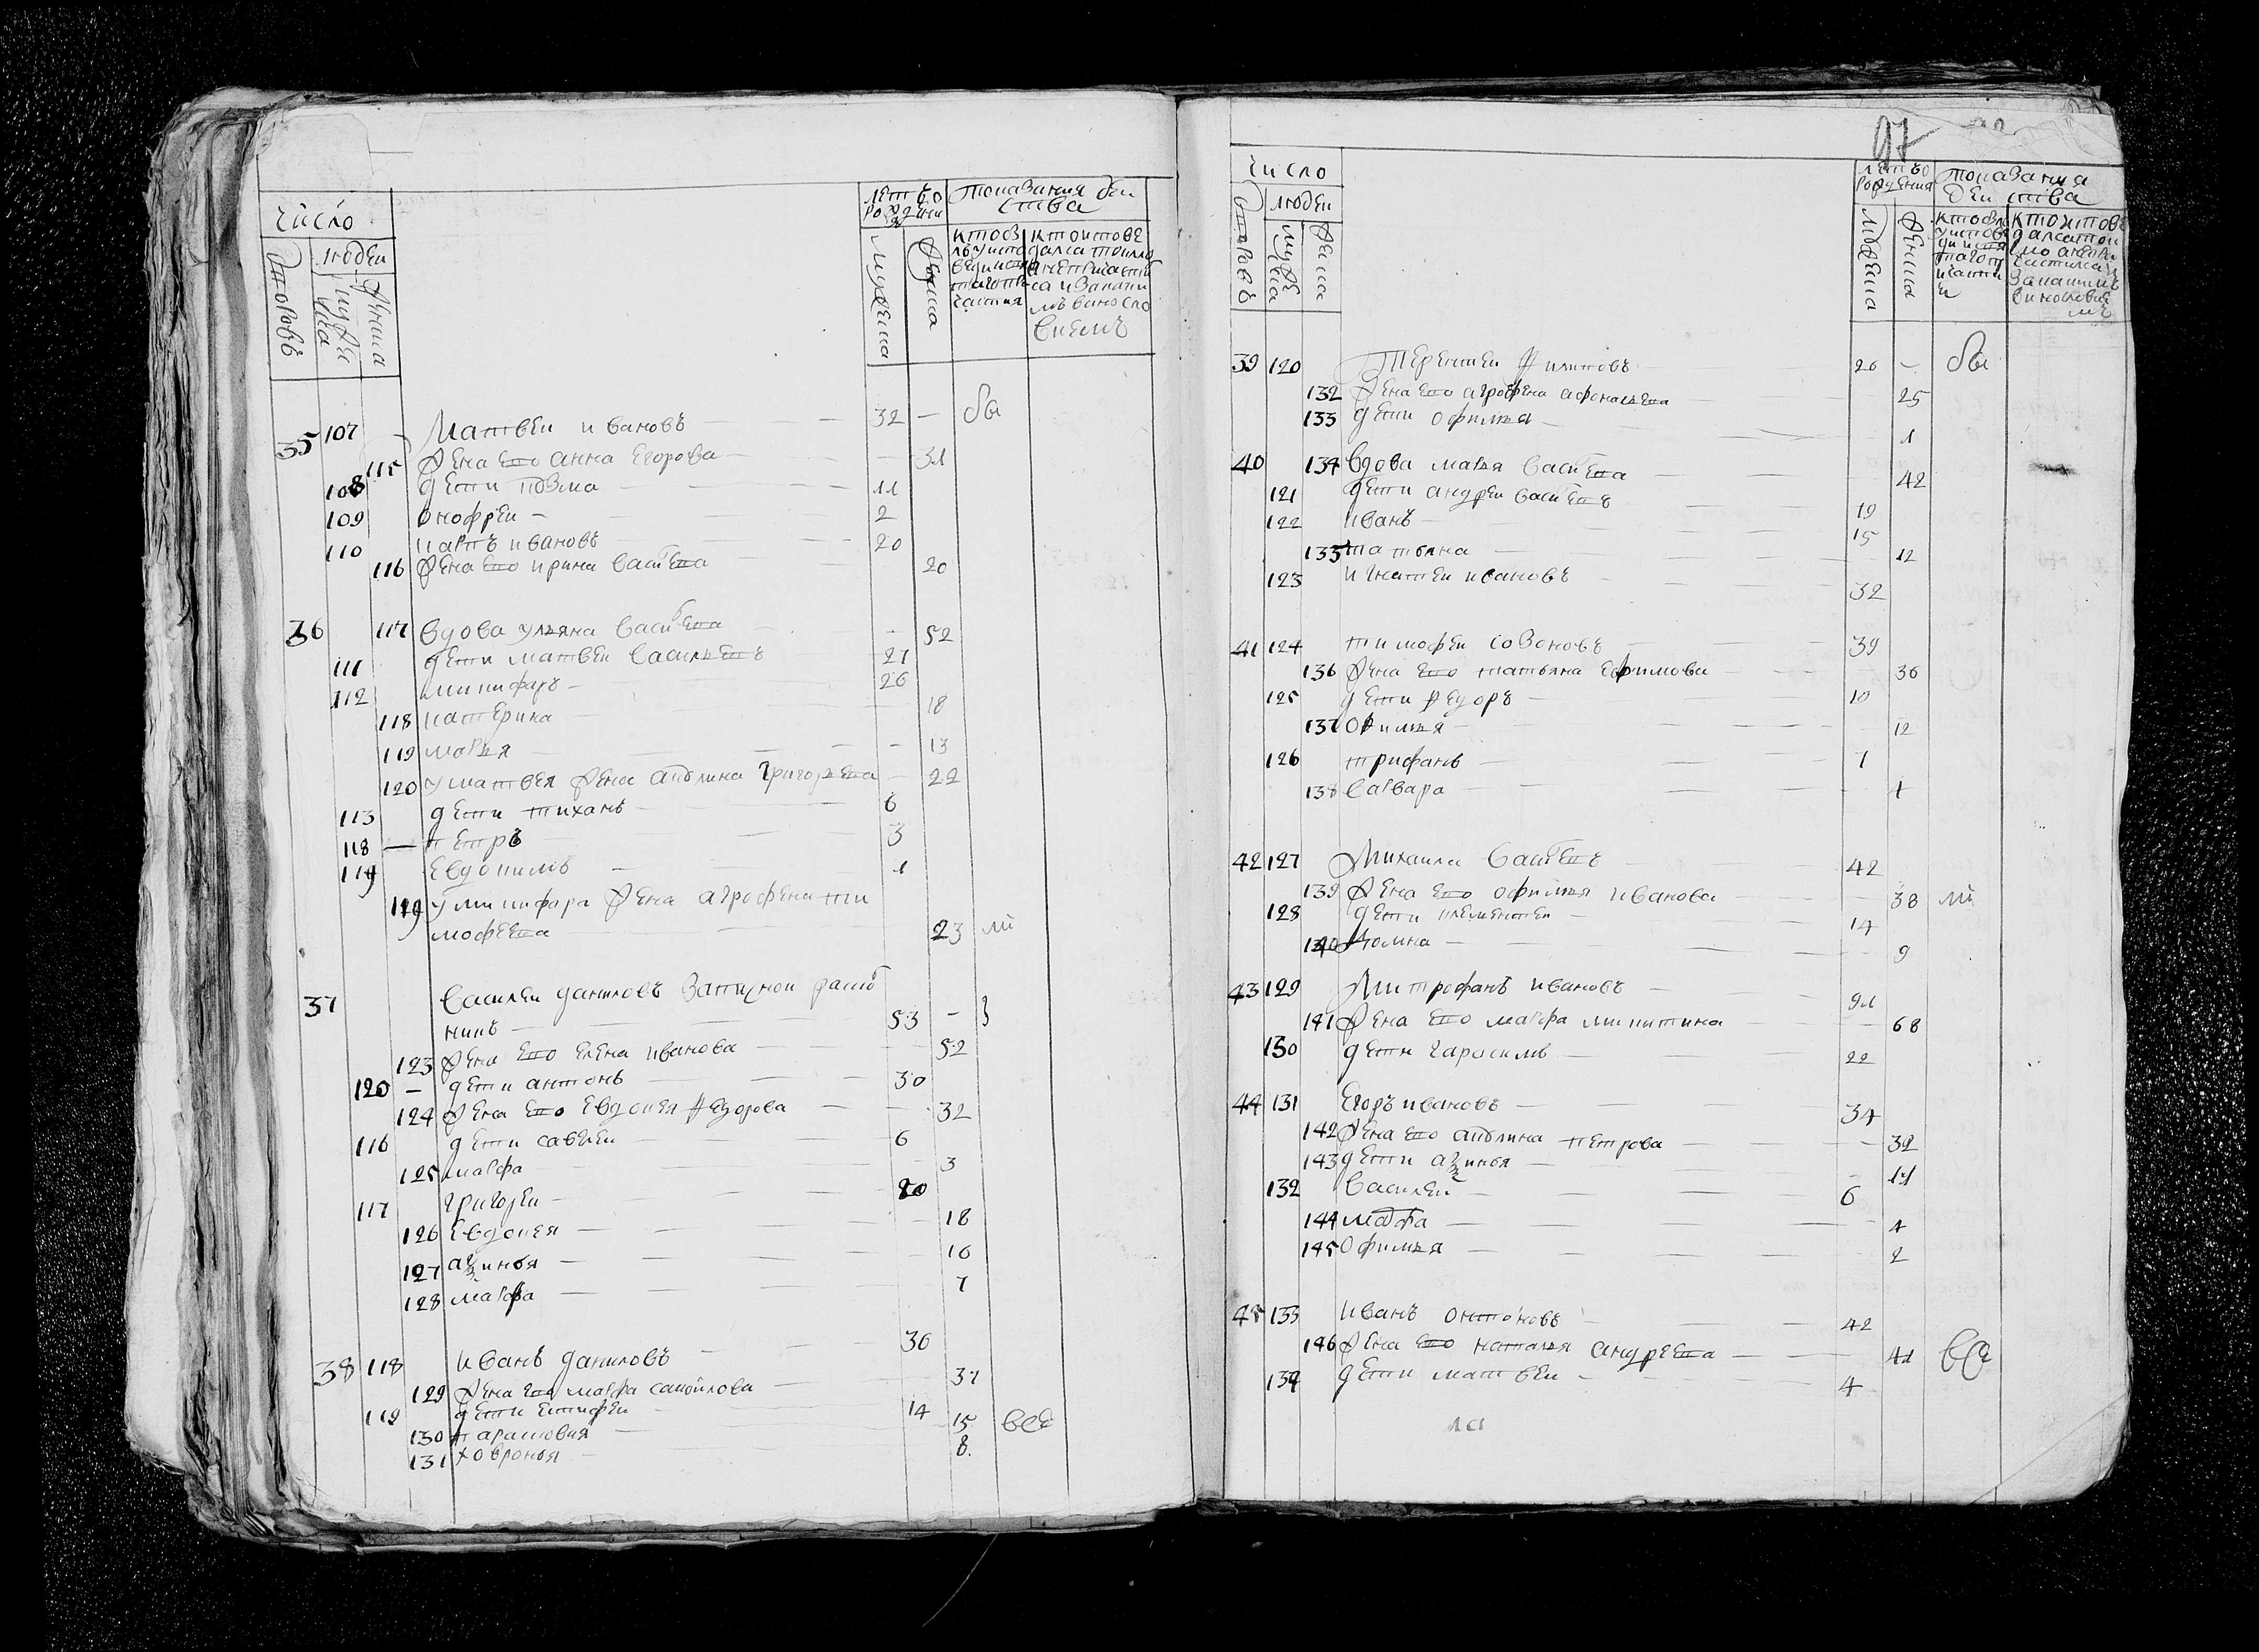 число
людеи
дворовъ
мужеска
женска
летъ от рождения
мужеска
женска
показания деиства
35 107 Матвеи ивановъ 32 — бы
115 жена ево анна Егорова 31
108 дети козма 11
109 онофреи — 2
110 карпъ ивановъ 20
116 жена ево ирина василева 20
36 117 вдова ульяна василева 52
111 дети матвеи васильевъ 27
112 никифаръ 26
118 катерина 18
119 марья 13
120 у матвея жена акулина григорьева 22
113 дети тиханъ 6
118 — петръ 3
119 Евдокимъ 1
у никифара жена агрофена ти
мофеева 23
37 василеи даниловъ записнои раско
никъ 53
123 жена ево елена иванова 52
120 — дети антонъ 30
124 жена ево Евдокея федорова 32
116 дети савелеи 6
125 марфа 3
117 григореи 20
126 Евдокея 18
127 аксинья 10
128 марфа 7
38 118 иванъ даниловъ 36
129 жена ево марфа самоилова 37
119 дети епифеи 14
130 парасковия 15 все
131 ховронья 8
97
число
людеи
дворовъ
мужеска
женска
летъ от рождения
мужеска
женска
показания деиства
39 120 Терентеи филиповъ 26 — бы
132 жена ево агрофена афонасьева 25
133 дети офимья 1
40 134 вдова марья василева 42
121 дети андреи василевъ 19
122 иванъ 15
135 татьяна 12
123 игнатеи ивановъ 32
41 124 тимофеи созоновъ 39
136 жена ево татьяна Ефимова 36
125 дети федоръ 10
137 офимья 12
126 трифанъ 7
138 варвара 1
42 127 Михаила василевъ 42
139 жена ево офимья иванова 38
128 дети клементеи 14
140 9
43 129 Митрофанъ ивановъ 91
141 жена ево марфа никитина 68
130 дети гарасимъ 22
44 131 Егоръ ивановъ 34
142 жена ево акулина петрова 32
143 дети аксинья 11
132 василеи 6
144 марфа 4
145 офимья 2
45 133 иванъ онтоновъ 42
146 жена ево наталья андреева 41 все
134 дети матвеи 4